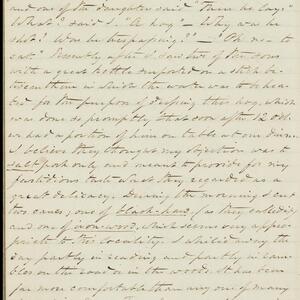 and one of the daughters said "There he lays"
"What?" said I. "A hog" — "Why was he
shot? Was he trespassing?" — "Oh no — to
eat." Presently after I saw two of the sons
with a great kettle supported on a stick be-
tween them in which the water was to be hea-
ted for the purpose of dressing this hog, which
was done so promptly that soon after 12 O'cl-
we had a portion of him on table at our dinner.
I believe they thought my objection was to
salt pork only and meant to provide for my
fastidious taste what they regarded as a
great delicacy. During the morning I cut
two canes, one of black-haw, (as they called it)
and one of iron-wood, which seems very appro-
priate to this locality. I whiled away the
day partly in reading and partly in ram-
bles on the road or in the woods. It has been
far more comfortable than any one of many